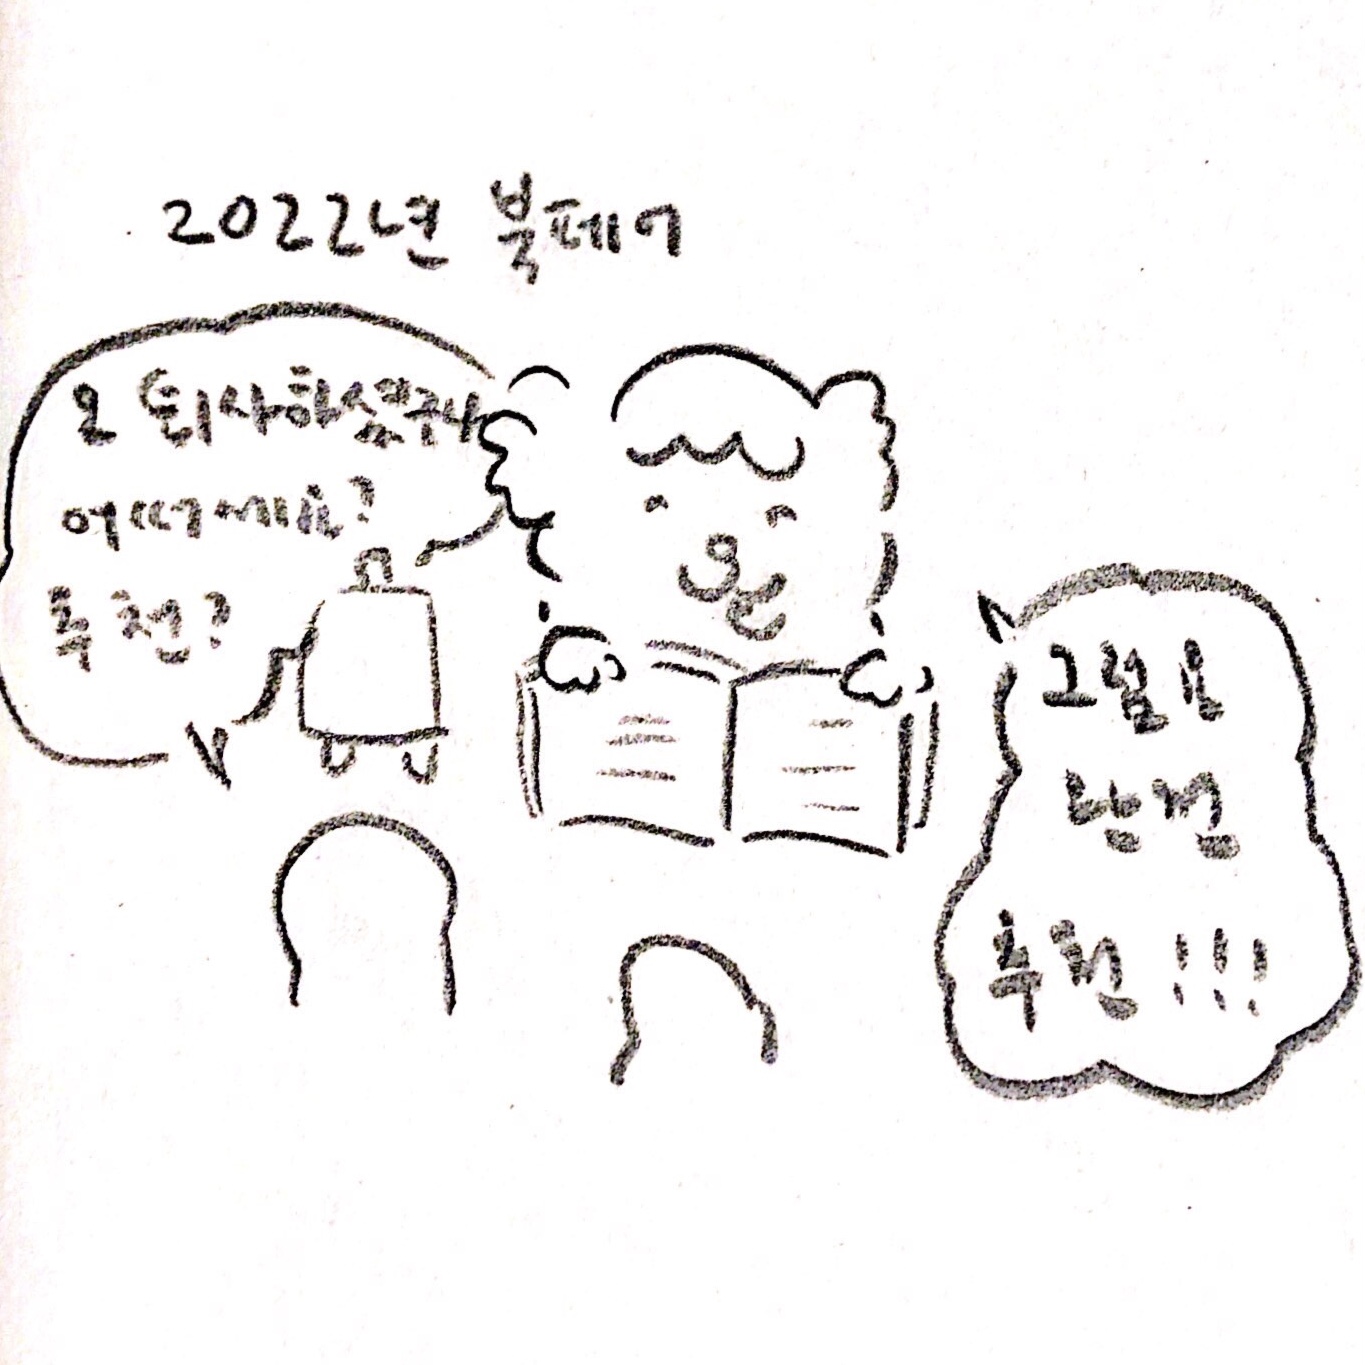 2022년 북페어
오 퇴사하셨구나
어떠세요?
추천?
그럼요
완전
추천!!!